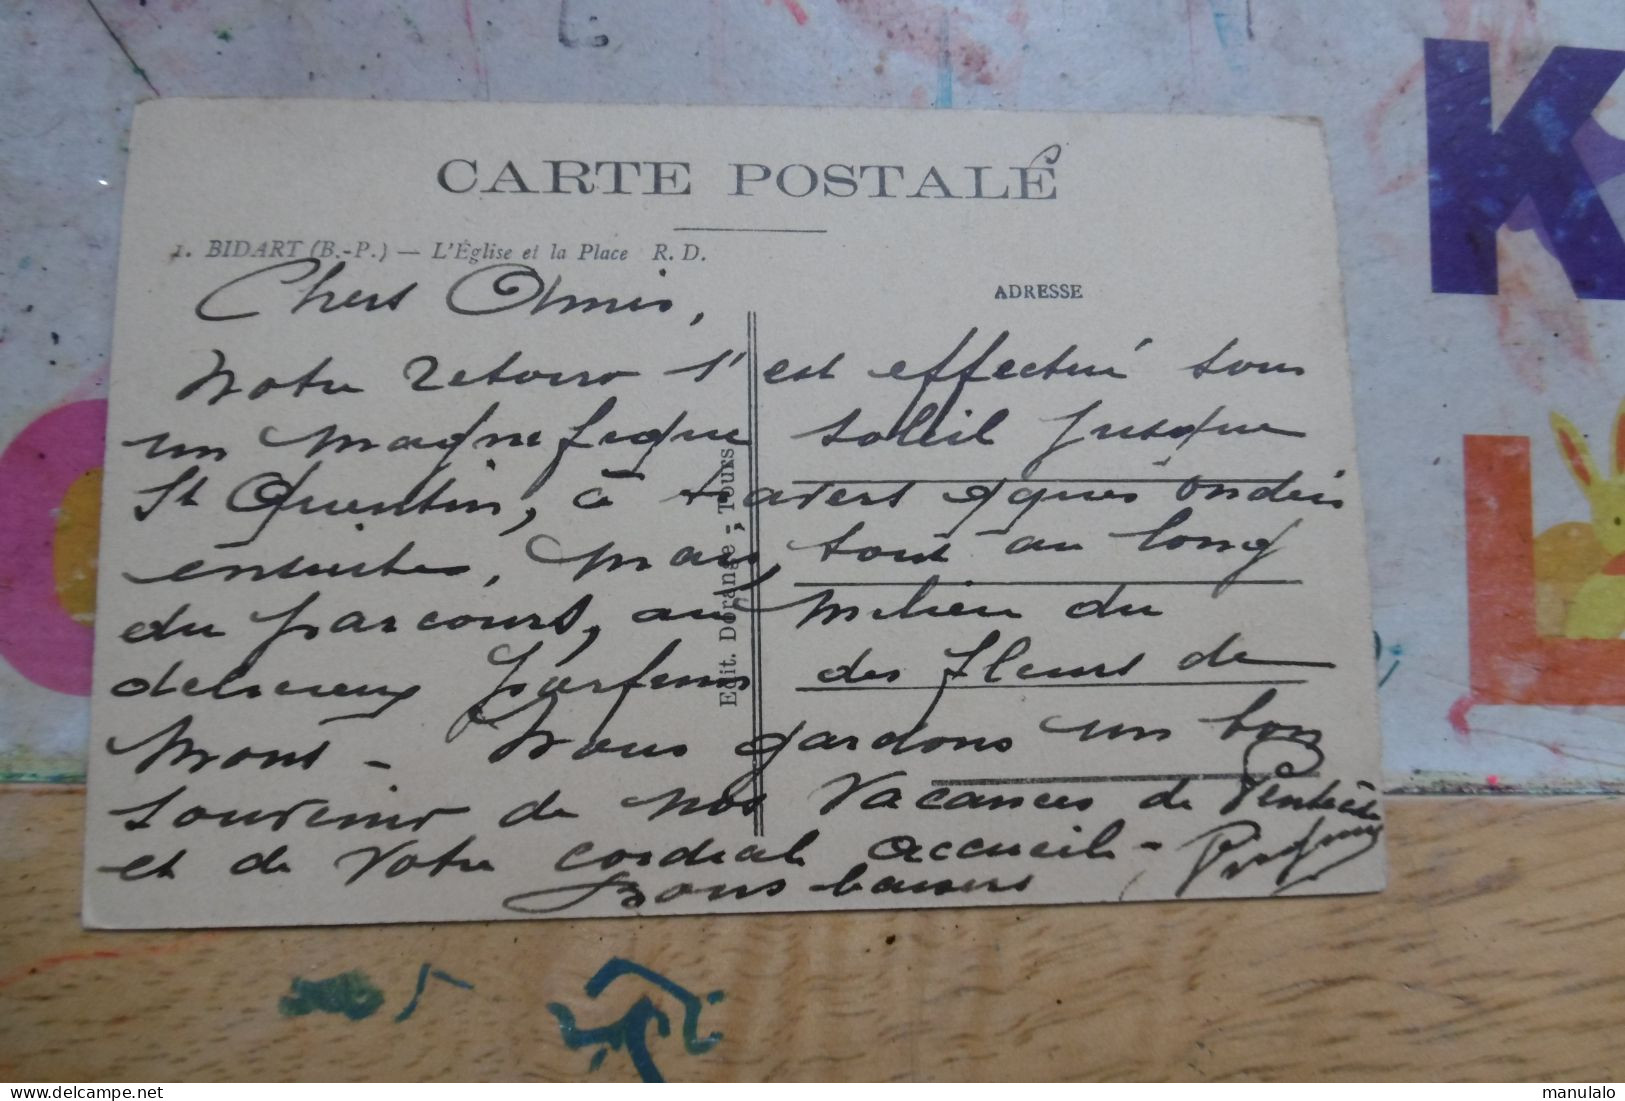 CARTE POSTALE
1. BIDART (B.-P.) — L'Église et la Place R. D.
ADRESSE
Chers Amis,
Notre retour s'est effectué sous
un magnifique soleil jusque
St Quentin, à travers qques ondées
ensuite, mais tout au long
du parcours, au milieu du
délicieux parfum des fleurs de
Mons - Nous gardons un bon
souvenir de nos vacances de Pentecôte
et de votre cordial accueil -
Bons baisers
Edit. Dorange - Tours
K
L
manulalo